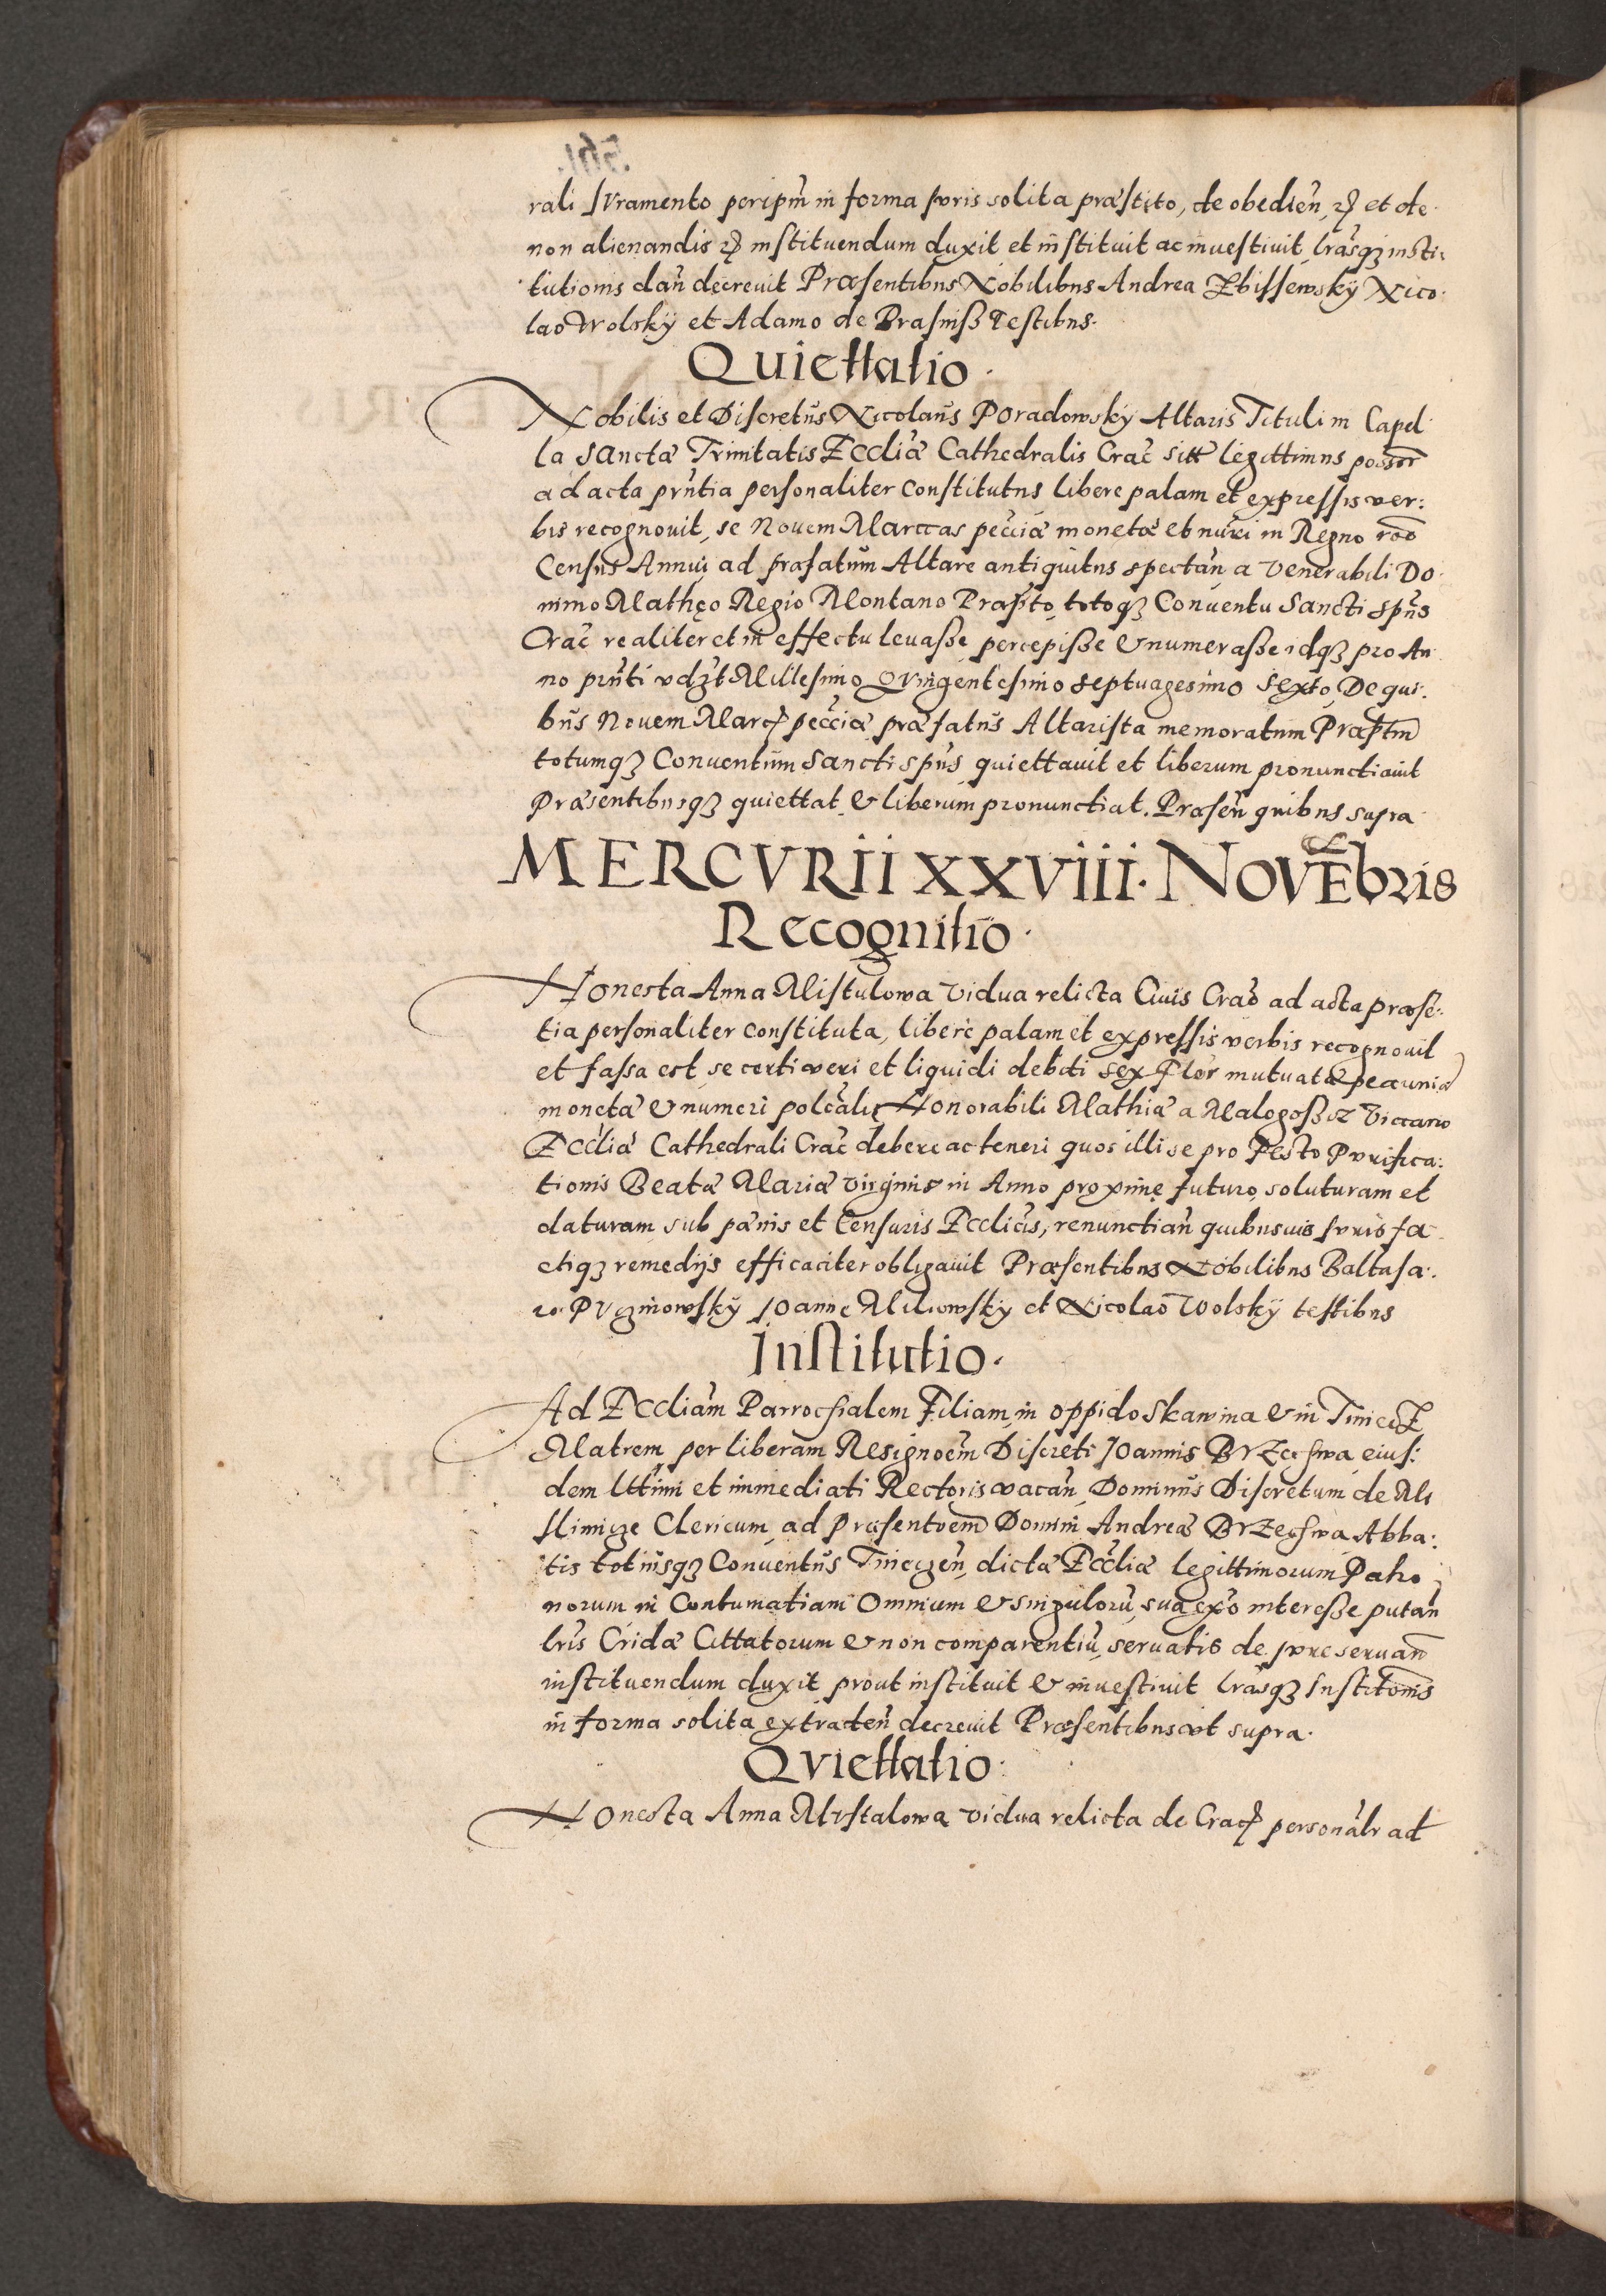 rali Iuramento per ipm̃ in forma Iuris solita præstito, de obedien̄, ꝛc et de
non alienandis ꝛc instituendum duxit et instituit ac inuestiuit lr̃asqꝫ insti-
tutionis dan̄ decreuit Præsentibus Nobilibus Andrea Zbissewskÿ Nico
lao Wolskÿ et Adamo de Prasniß Testibus.
Quiettatio.
Nobilis et Discretus Nicolaus Poradowskÿ Altaris Tituli in Capel
la Sanctæ Trinitatis Ecclĩæ Cathedralis Crac̃ sitt̃ legittimus possor̃
ad acta prñtia personaliter constitutus libere palam et expressis ver:
bis recognouit, se Nouem Marccas pecc̃iæ monetæ et nũri in Regno
Census Annui ad præfatum Altare antiquitus spectan̄ a Venerabili Do
mino Mathęo Regio Montano Præp̃to, totoqꝫ Conuentu Sancti Spũs
Crac̃ realiter et in effectu leuaße percepiße & numeraße idqꝫ pro An
no prñti vdꝫt Millesimo Quingentesimo Septuagesimo Sexto, De qui:
bus Nouem Marcꝭ pecc̃iæ præfatus Altarista memoratum Præp̃tm̃
totumqꝫ Conuentum Sancti Spũs quiettauit et liberum pronunctiauit
Præsentibusqꝫ quiettat & liberum pronunctiat. Præsen̄ quibus supra
MERCVRII XXVIII. NOVE̅bris
Recognitio.
Honesta Anna Mistulowa Vidua relicta Ciuis Crac̃ ad acta præsẽ:
tia personaliter constituta, libere palam et expressis verbis recognouit
et fassa est se certi veri et liquidi debiti sex Flor̃ mutuatæ pecuniæ
monetæ & numeri polc̃alis Honorabili Mathiæ a Malogoßcz Viccario
Ecclĩæ Cathedrali Crac̃ debere ac teneri quos illi se pro Festo Purifica:
tionis Beatæ Mariæ Virginis in Anno proxime futuro, soluturam et
daturam sub pænis et Censuris Ecclĩcis, renunctian̄ quibusuis Iuris fa
ctiqꝫ remedijs efficaciter obligauit Præsentibus Nobilibus Baltasa:
re Ioanne et Nicolao Wolskÿ testibus
Institutio.
Ad Ecclĩam Parrochialem Filiam in oppido Skawina & in
Matrem per liberam Resignoẽm Discreti Ioannis Brzechwa eius:
dem Ulttimi et immediati Rectoris vacan̄ Dominus Discretum de
Clericum ad præsentoẽm Domini Andreæ Brzechwa Abba:
tis totiusqꝫ Conuentus Tinecẓen̄ dictæ Ecclĩæ legittimorum Patro
norum in Contumatiam Omnium & singulorũ sua ex͂o interesse putan̄
lr̃is Cridæ Cittatorum & non comparentiũ seruatis de iure seruan̄
instituendum duxit prout instituit & inuestiuit lr̃asqꝫ Institonis
in forma solita extracten̄ decreuit Præsentibus vt supra.
Quiettatio.
Honesta Anna Mistalowa vidua relicta de Cracꝭ personãlr ad